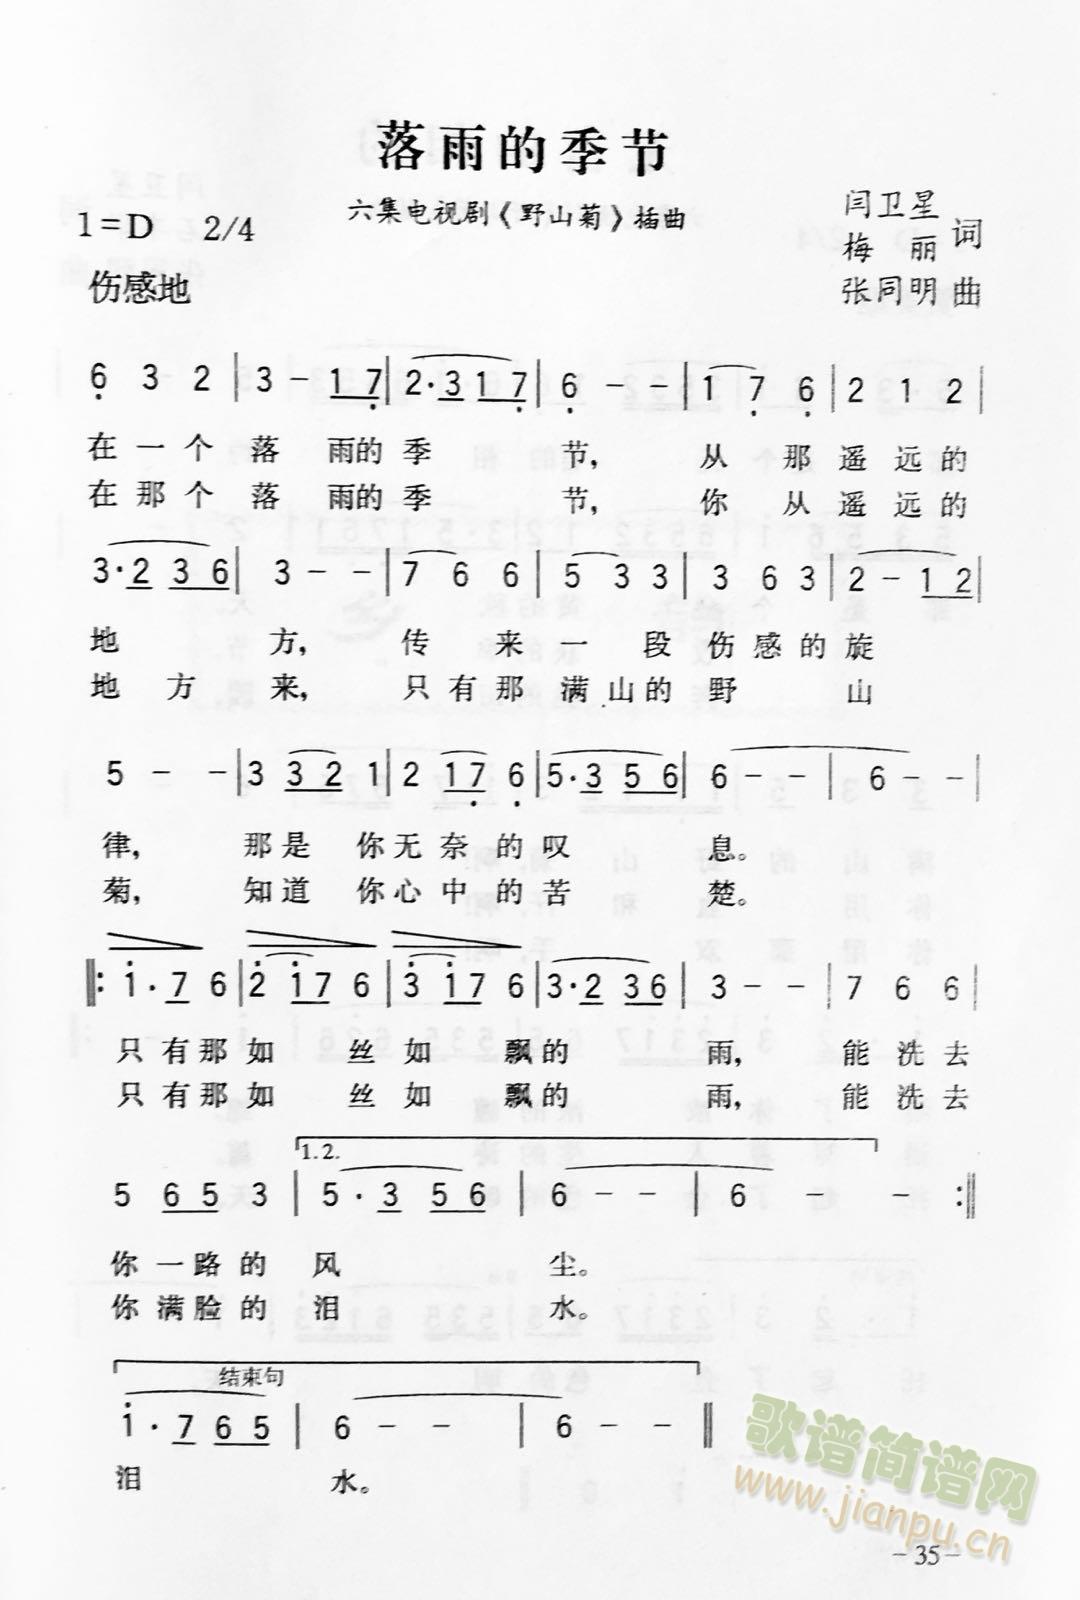 落雨的季节
六集电视剧《野山菊》插曲
1=D 2/4
闫卫星
梅 丽 词
张同明 曲
伤感地
6 3 2 | 3 - 1 7 | 2·3 1 7 | 6 - - | 1 7 6 | 2 1 2 |
在一个 落 雨的季 节, 从 那 遥远的
在那个 落 雨的季 节, 你 从 遥远的
3·2 3 6 | 3 - - | 7 6 6 | 5 3 3 | 3 6 3 | 2 - 1 2 |
地 方, 传 来 一 段 伤感的旋
地 方 来, 只有那 满山的 野 山
5 - - | 3 3 2 1 | 2 1 7 6 | 5·3 5 6 | 6 - - | 6 - - |
律, 那是 你无奈的叹 息。
菊, 知道 你心中的苦 楚。
‖: i·7 6 | 2 i 7 6 | 3 i 7 6 | 3·2 3 6 | 3 - - | 7 6 6 |
只有那如 丝如 飘的 雨, 能洗去
只有那如 丝如 飘的 雨, 能洗去
1.2.
5 6 5 3 | 5·3 5 6 | 6 - - | 6 - - :‖
你一路的 风 尘。
你满脸的 泪 水。
结束句
i·7 6 5 | 6 - - | 6 - - ‖
泪 水。
歌谱简谱网
www.jianpu.cn
-35-